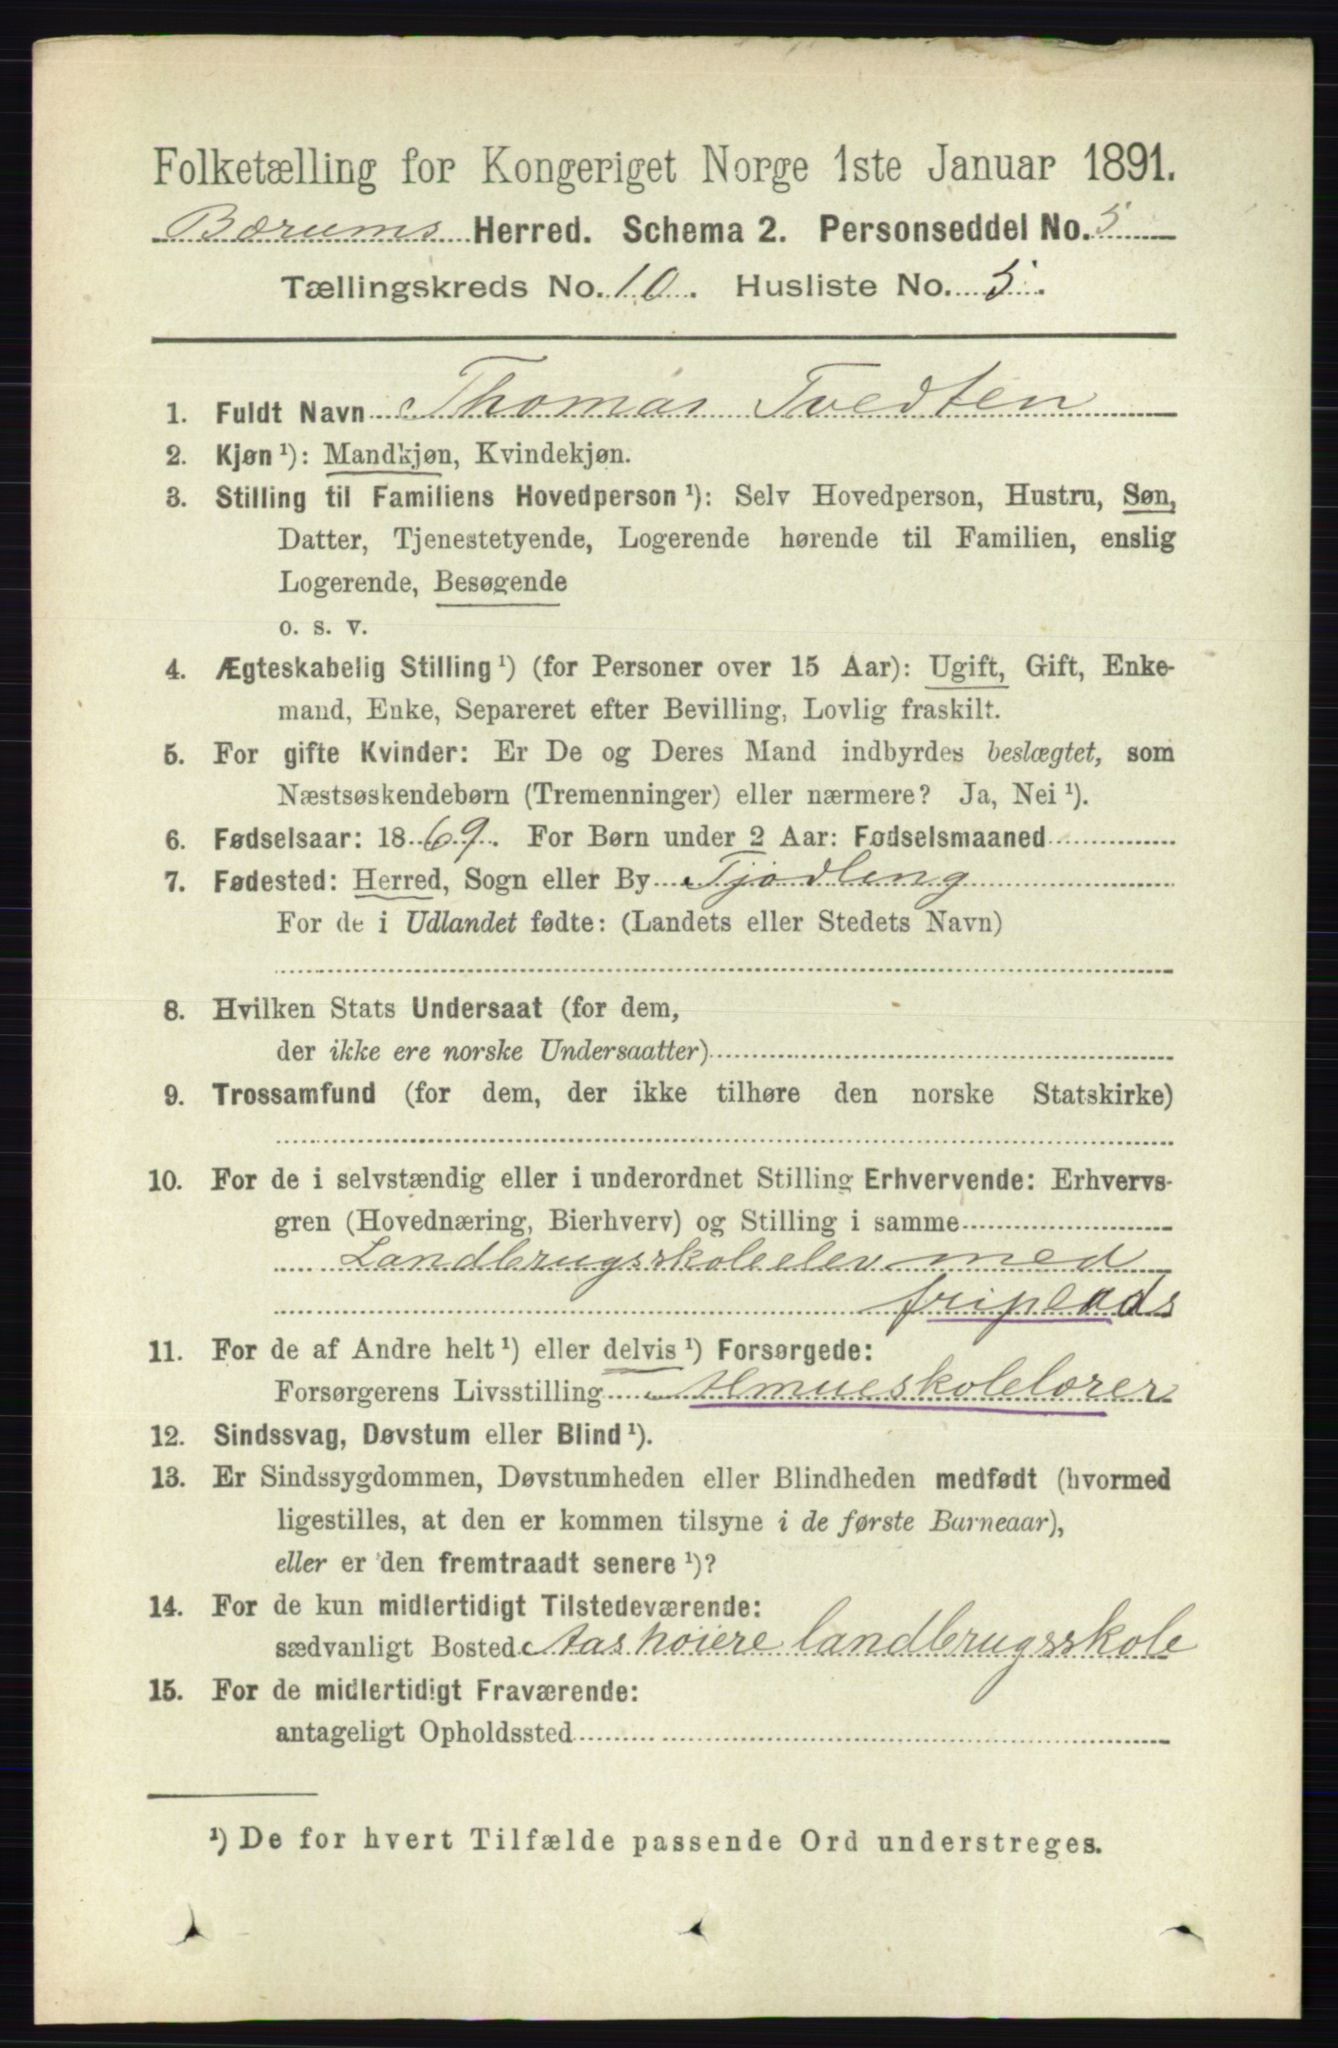 Folketælling for Kongeriget Norge 1ste Januar 1891.
Bærums Herred. Schema 2. Personseddel No. 5
Tællingskreds No. 10. Husliste No. 5.
1. Fuldt Navn Thomas Tvedten
2. Kjøn ¹): Mandkjøn, Kvindekjøn.
3. Stilling til Familiens Hovedperson ¹): Selv Hovedperson, Hustru, Søn,
Datter, Tjenestetyende, Logerende hørende til Familien, enslig
Logerende, Besøgende
o. s. v.
4. Ægteskabelig Stilling ¹) (for Personer over 15 Aar): Ugift, Gift, Enke-
mand, Enke, Separeret efter Bevilling, Lovlig fraskilt.
5. For gifte Kvinder: Er De og Deres Mand indbyrdes beslægtet, som
Næstsøskendebørn (Tremenninger) eller nærmere? Ja, Nei ¹).
6. Fødselsaar: 1869. For Børn under 2 Aar: Fødselsmaaned
7. Fødested: Herred, Sogn eller By Tjødling
For de i Udlandet fødte: (Landets eller Stedets Navn)
8. Hvilken Stats Undersaat (for dem,
der ikke ere norske Undersaatter)
9. Trossamfund (for dem, der ikke tilhøre den norske Statskirke)
10. For de i selvstændig eller i underordnet Stilling Erhvervende: Erhvervs-
gren (Hovednæring, Bierhverv) og Stilling i samme
Landbrugsskoleelev med
friplads
11. For de af Andre helt ¹) eller delvis ¹) Forsørgede:
Forsørgerens Livsstilling Almueskolelærer
12. Sindssvag, Døvstum eller Blind ¹).
13. Er Sindssygdommen, Døvstumheden eller Blindheden medfødt (hvormed
ligestilles, at den er kommen tilsyne i de første Barneaar),
eller er den fremtraadt senere ¹)?
14. For de kun midlertidigt Tilstedeværende:
sædvanligt Bosted Aas høiere landbrugsskole
15. For de midlertidigt Fraværende:
antageligt Opholdssted
¹) De for hvert Tilfælde passende Ord understreges.